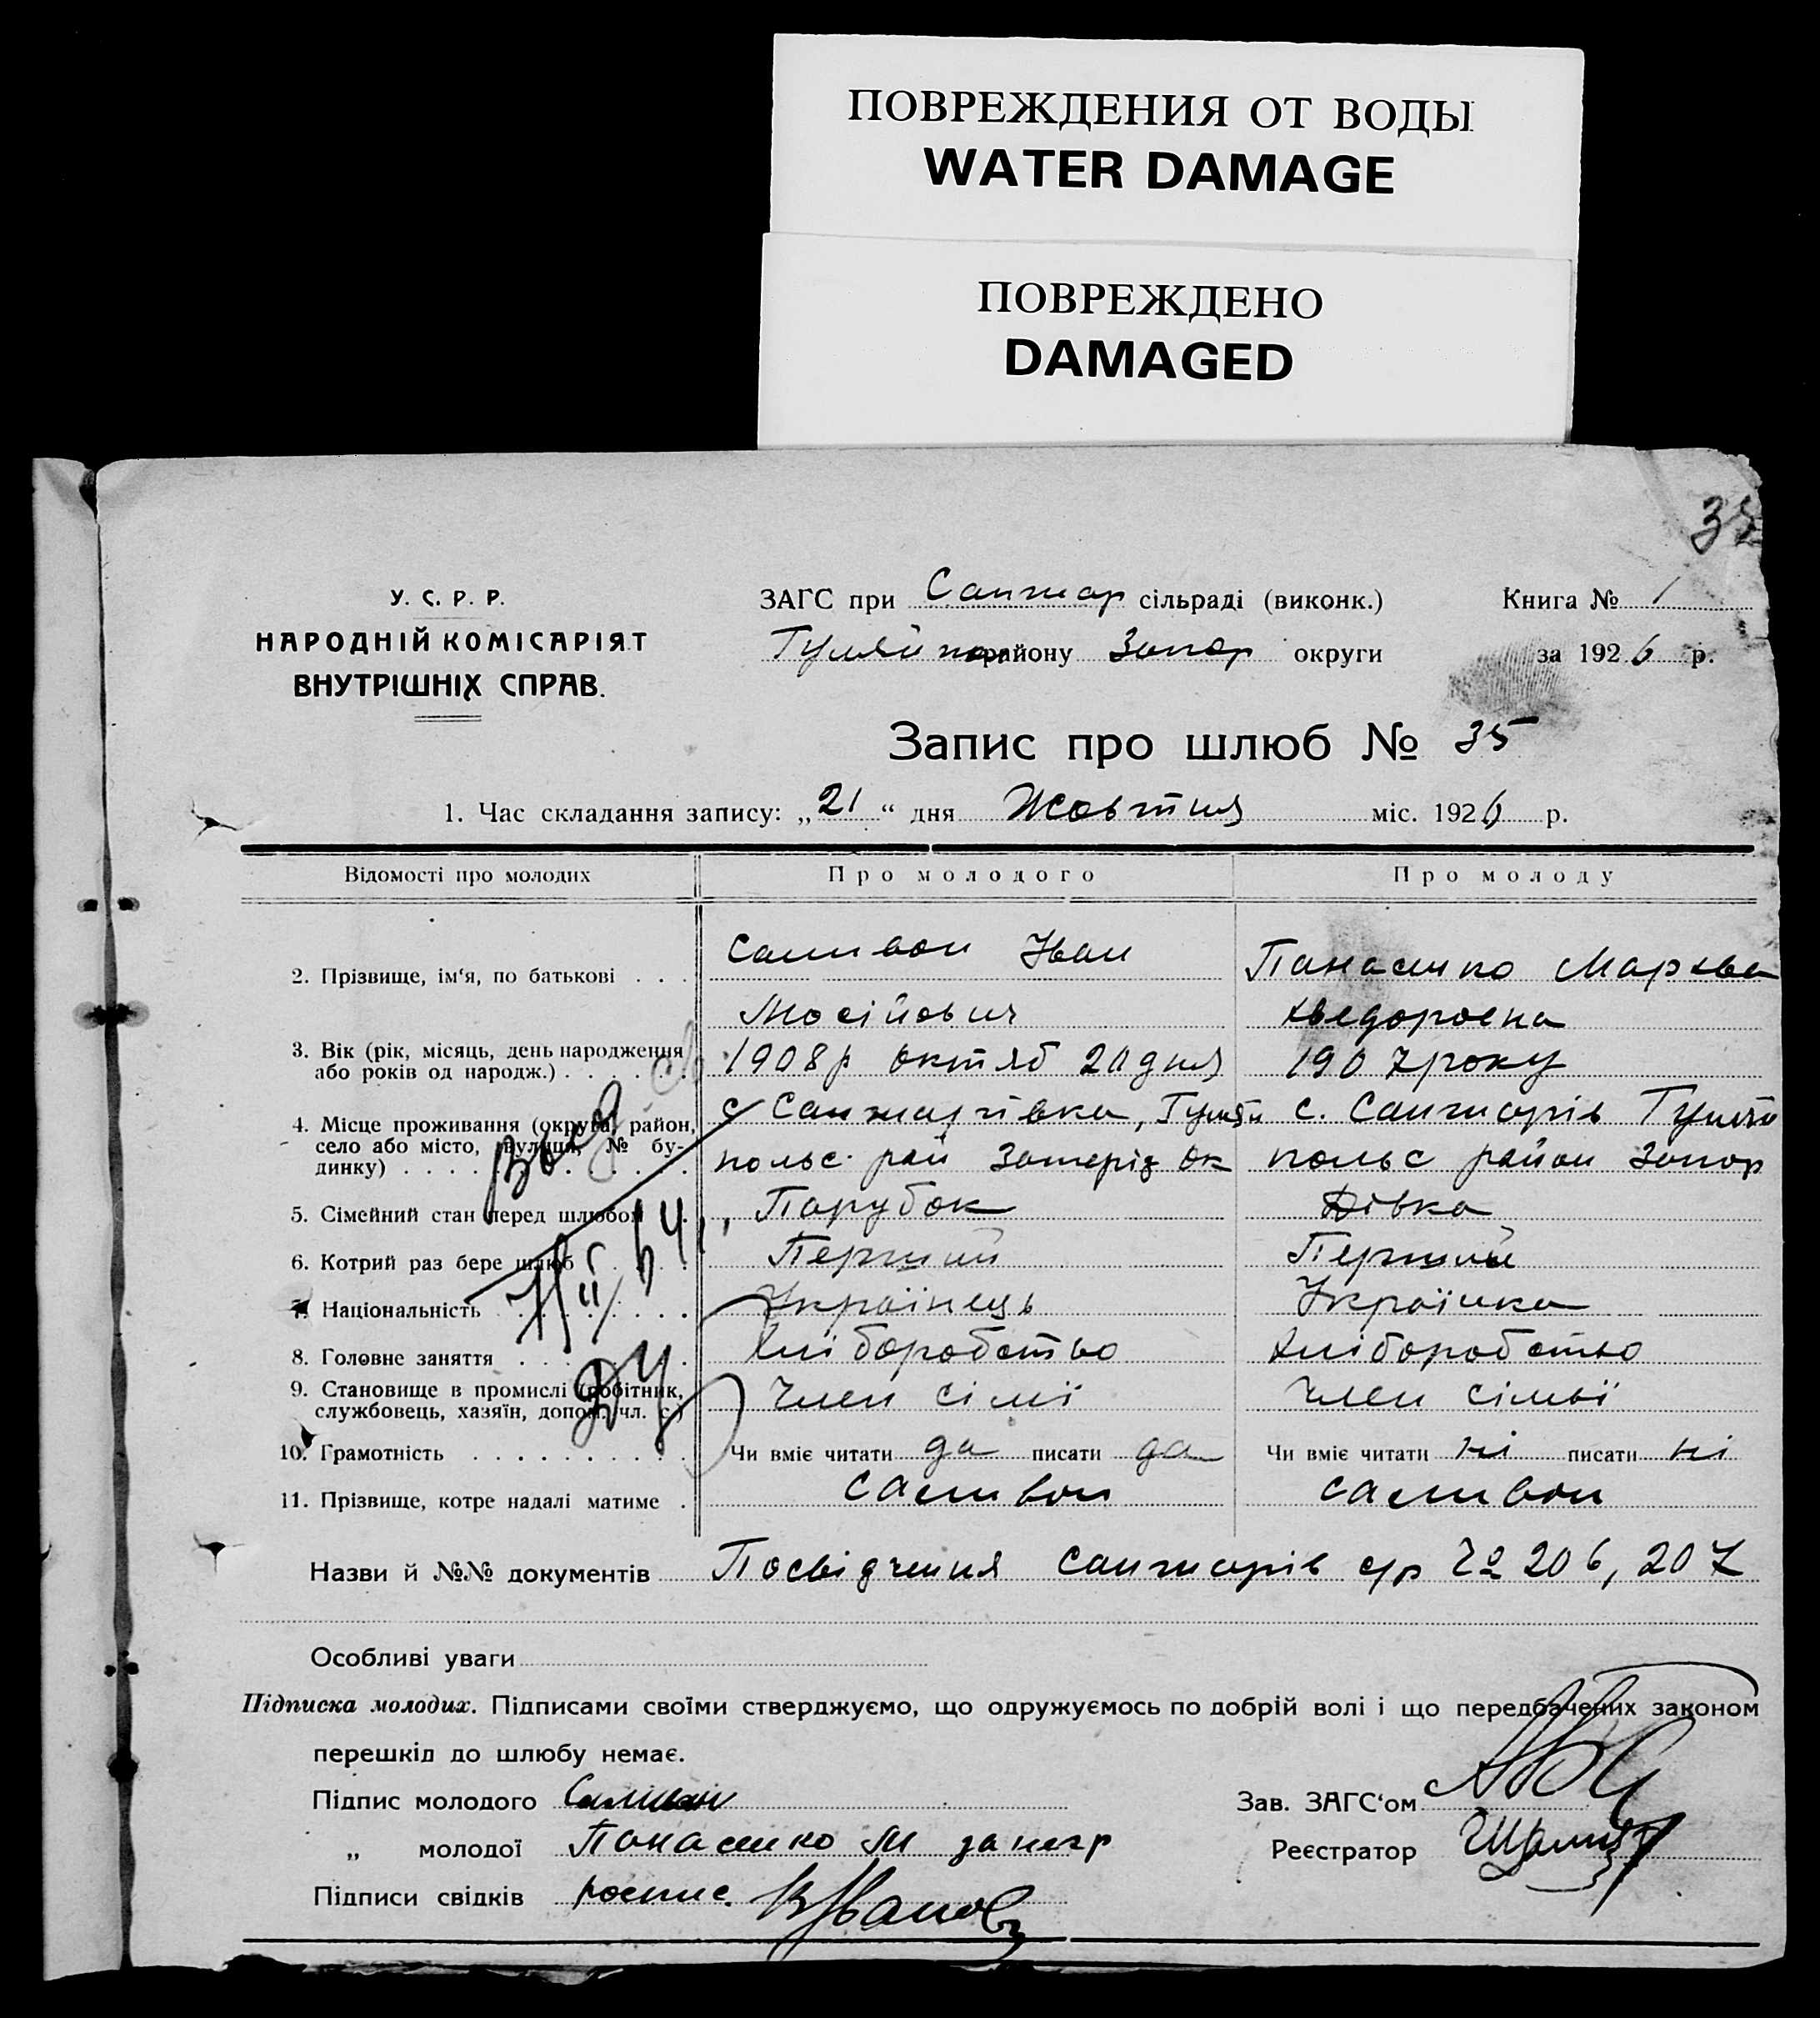 ПОВРЕЖДЕНИЯ ОТ ВОДЫ
WATER DAMAGE
ПОВРЕЖДЕНО
DAMAGED
У. С. Р. Р.
НАРОДНІЙ КОМІСАРІЯТ
ВНУТРІШНІХ СПРАВ.
ЗАГС при Санжар сільраді (виконк.)
Книга № 1
Гуляйпол району Запор округи
за 1926 р.
Запис про шлюб № 35
1. Час складання запису: „21“ дня Жовтня міс. 1926 р.
Відомості про молодих
Про молодого
Про молоду
2. Прізвище, ім‘я, по батькові . . .
Саливон Іван
Мосійович
Панасенко Мархва
Хведоровна
3. Вік (рік, місяць, день народження
або років од народж.) . . . . . .
1908р Октяб 20 дня
1907 року
4. Місце проживання (округа, район,
село або місто, вулиця, № бу-
динку) . . . . . . . . . . .
с Санжарівка, Гуляй
польс. рай Запоріз ок
с. Санжарів Гуляй
польс район Запор
5. Сімейний стан перед шлюбом .
Парубок
Дівка
6. Котрий раз бере шлюб . . . .
Перший
Перший
7. Національність . . . . . . . . .
Українець
Українка
8. Головне заняття . . . . . . . .
Хліборобство
Хліборобство
9. Становище в промислі (робітник,
службовець, хазяїн, допом. чл. с.)
Член сімї
Член сімьї
10. Грамотність . . . . . . . . . .
Чи вміє читати да писати да
Чи вміє читати ні писати ні
11. Прізвище, котре надалі матиме .
Саливон
Саливон
Назви й №№ документів Посвідчення Санжарів с/р № 206, 207
Особливі уваги
Підписка молодих. Підписами своїми стверджуємо, що одружуємось по добрій волі і що передбачених законом
перешкід до шлюбу немає.
Підпис молодого Саливон
Зав. ЗАГС‘ом
„ молодої Панасенко М за негр
Реєстратор
Підписи свідків роспис. ВИванов